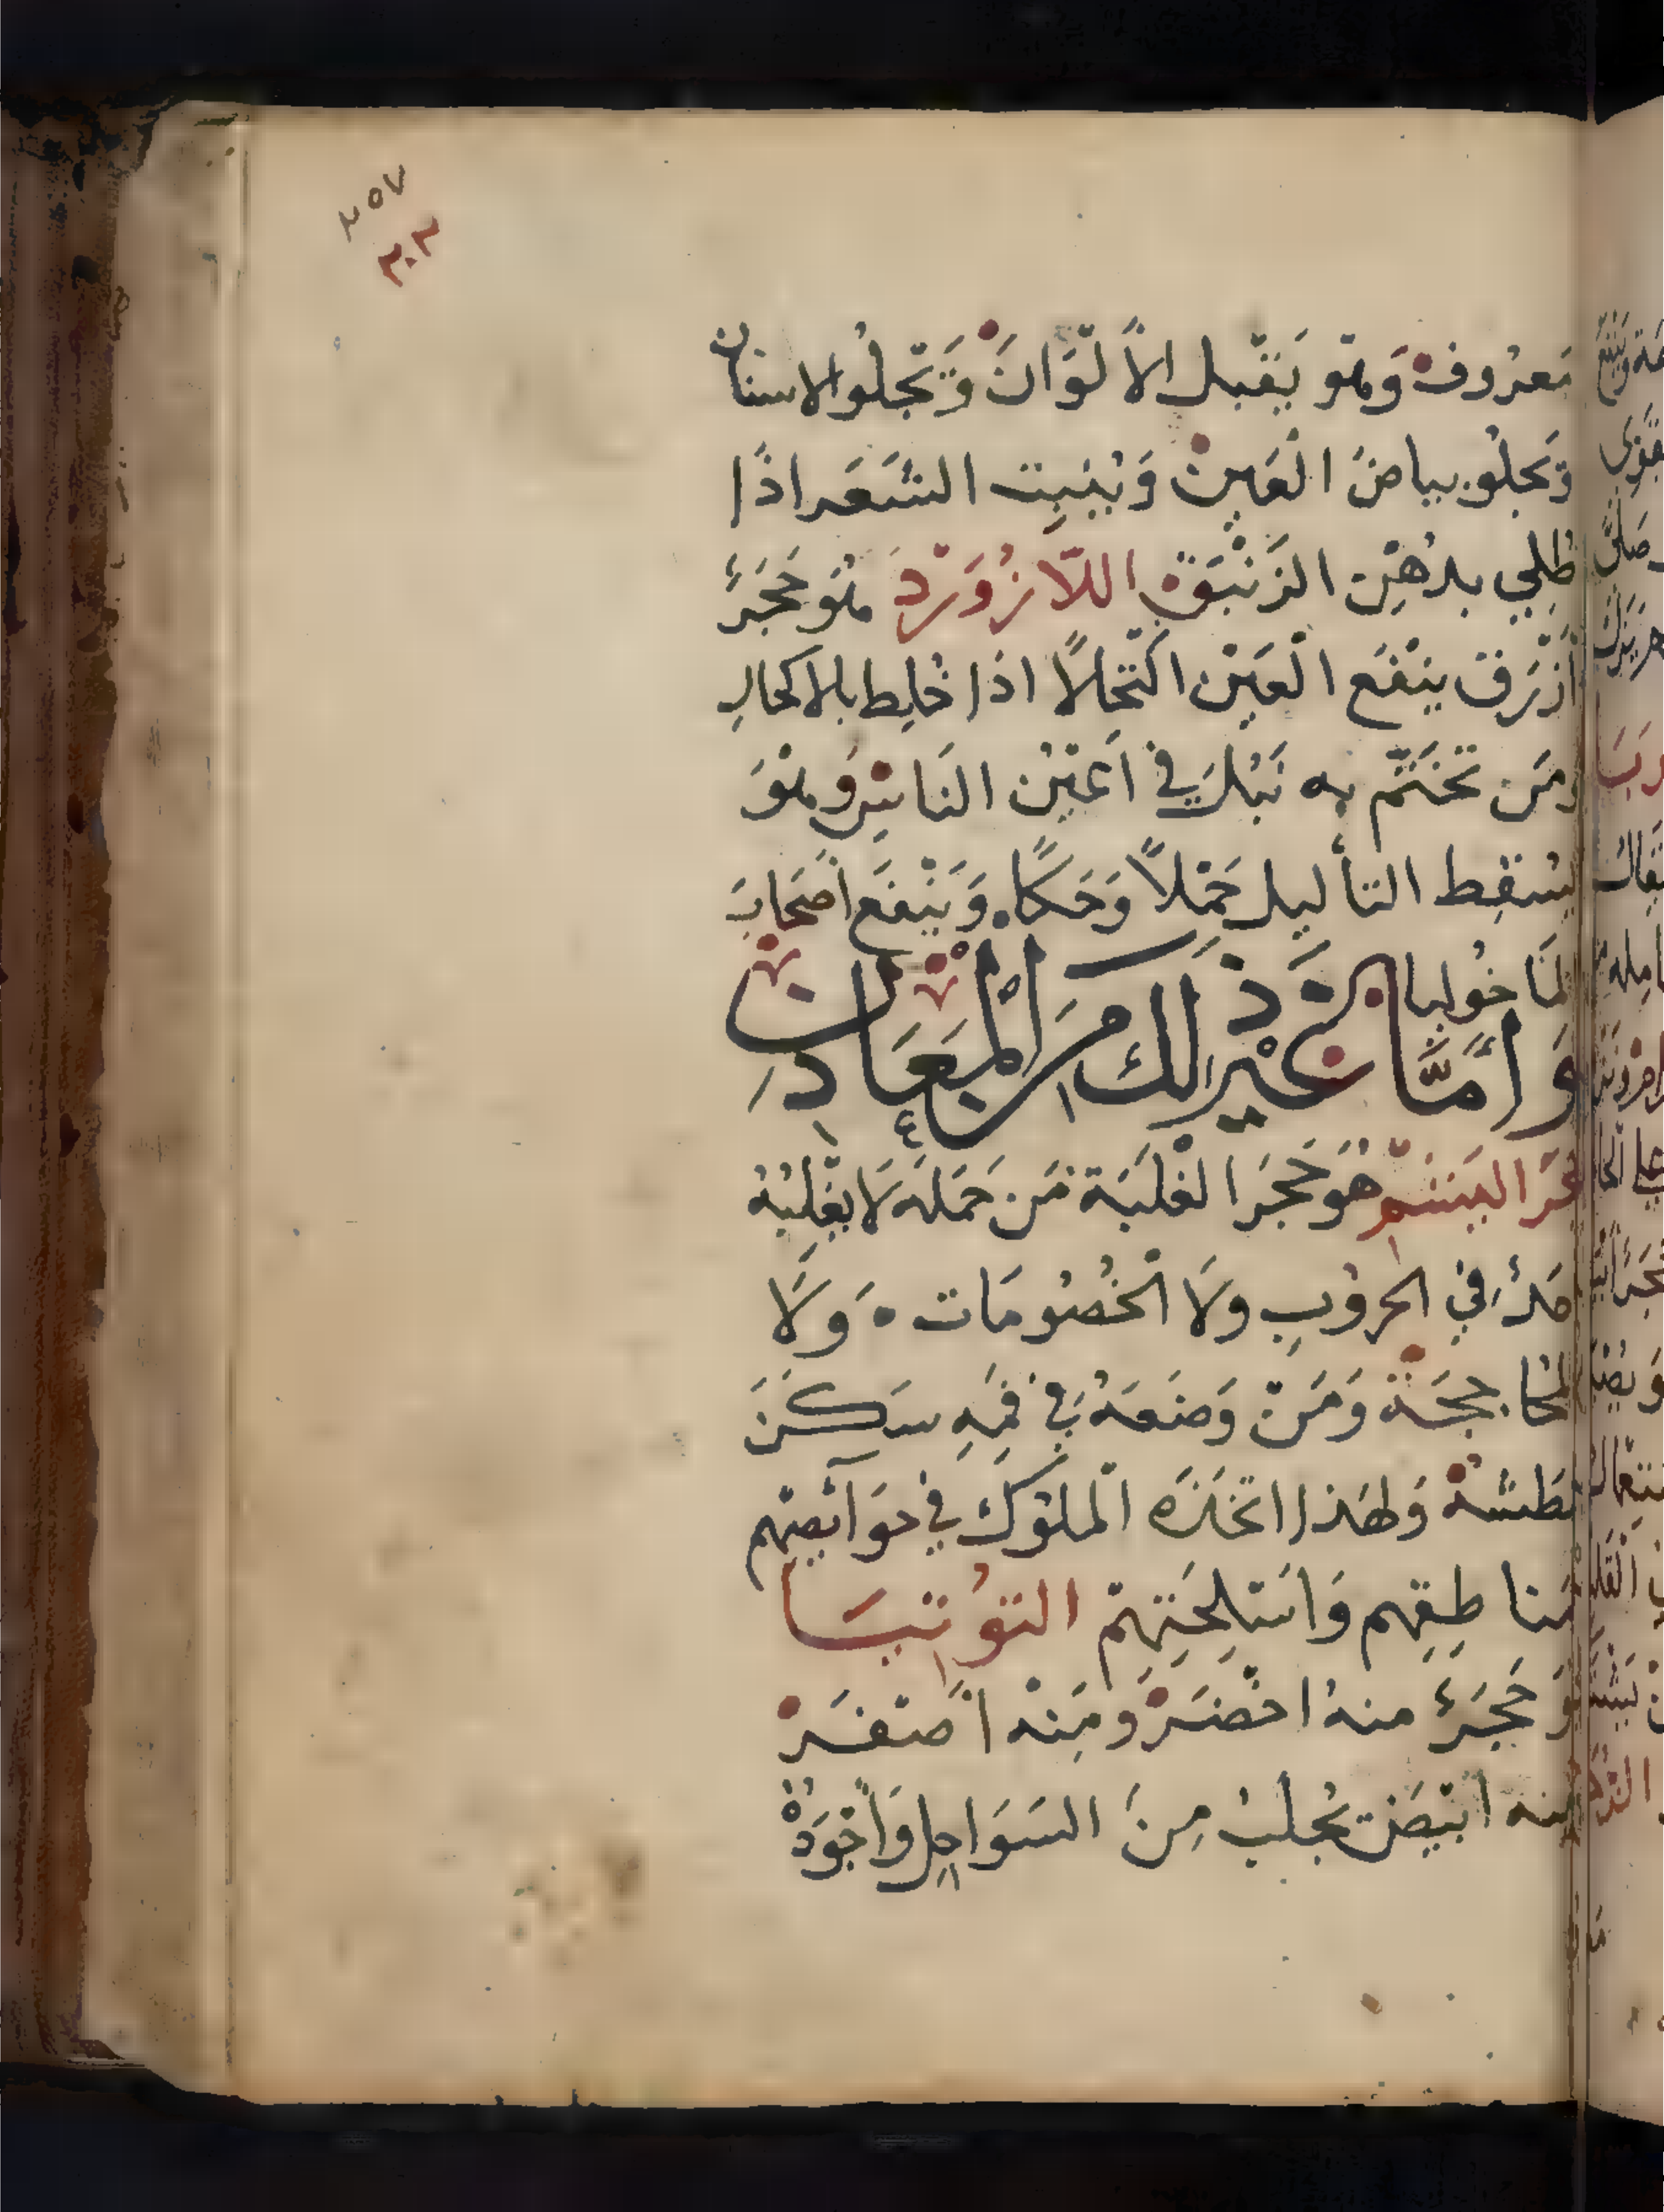 ٢٥٧
٣٠٢
مَعرُوف وَهو يَقبل الأَلوَانَ وَتجلُوا الاسنان
وَتجلُو بياضَ العَين وَيُنبِت الشَعَر اذَا
طُلِي بدُهن الزَنبَق اللّازُوَرْد هُوَ حَجَرٌ
أَزْرَق ينفَع العَيْن اكتحالًا اذا خُلِط بالاكحالِ
ومَن تَختَّم به نَبُلَ في اَعيُن الناسِ وهُوَ
يُسْقِط الثأليل حَمْلاً وَحَكًا وَيَنْفَع أصحَابَ
المَاخُوليا
وَأمَّا غيْر ذَلك مِنَ الْمَعَادِن
حَجَر اليَشم هُوَ حَجَر الغلبَة مَن حَمَلَه لَا يغلِبُهُ
أحَدٌ في الحروُبِ ولَا الخُصُومَات ه وَلَا
المُحاججَة وَمَن وَضَعَهُ في فمِهِ سَكَّنَ
عَطشه وَلهَذا اتخَذَه الملوُك في حوَآئصِهم
ومناطِقِهم وَاسْلِحَتِهِمْ التوُتيَا
هُوَ حَجَرٌ منهُ اخضَرْ وَمِنْهُ أصْفَرْ
ومنه ابْيَضْ يُجلبُ مِنَ السَوَاحِل وَأجْوَدُهُ